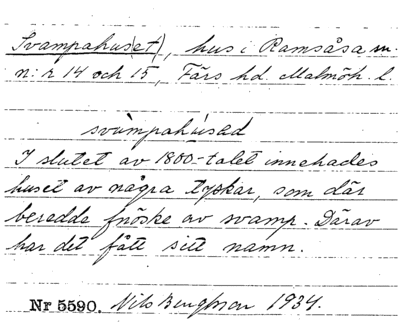 Svampahus(et), hus i Ramsåsa m.
n:r 14 och 15, Färs hd. Malmöh. l.
svàmpahúsəd
I slutet av 1800-talet innehades
huset av några tyskar, som där
beredde fnöske av svamp. Därav
har det fått sitt namn.
Nr 5590. Nils Bengtsson 1934.